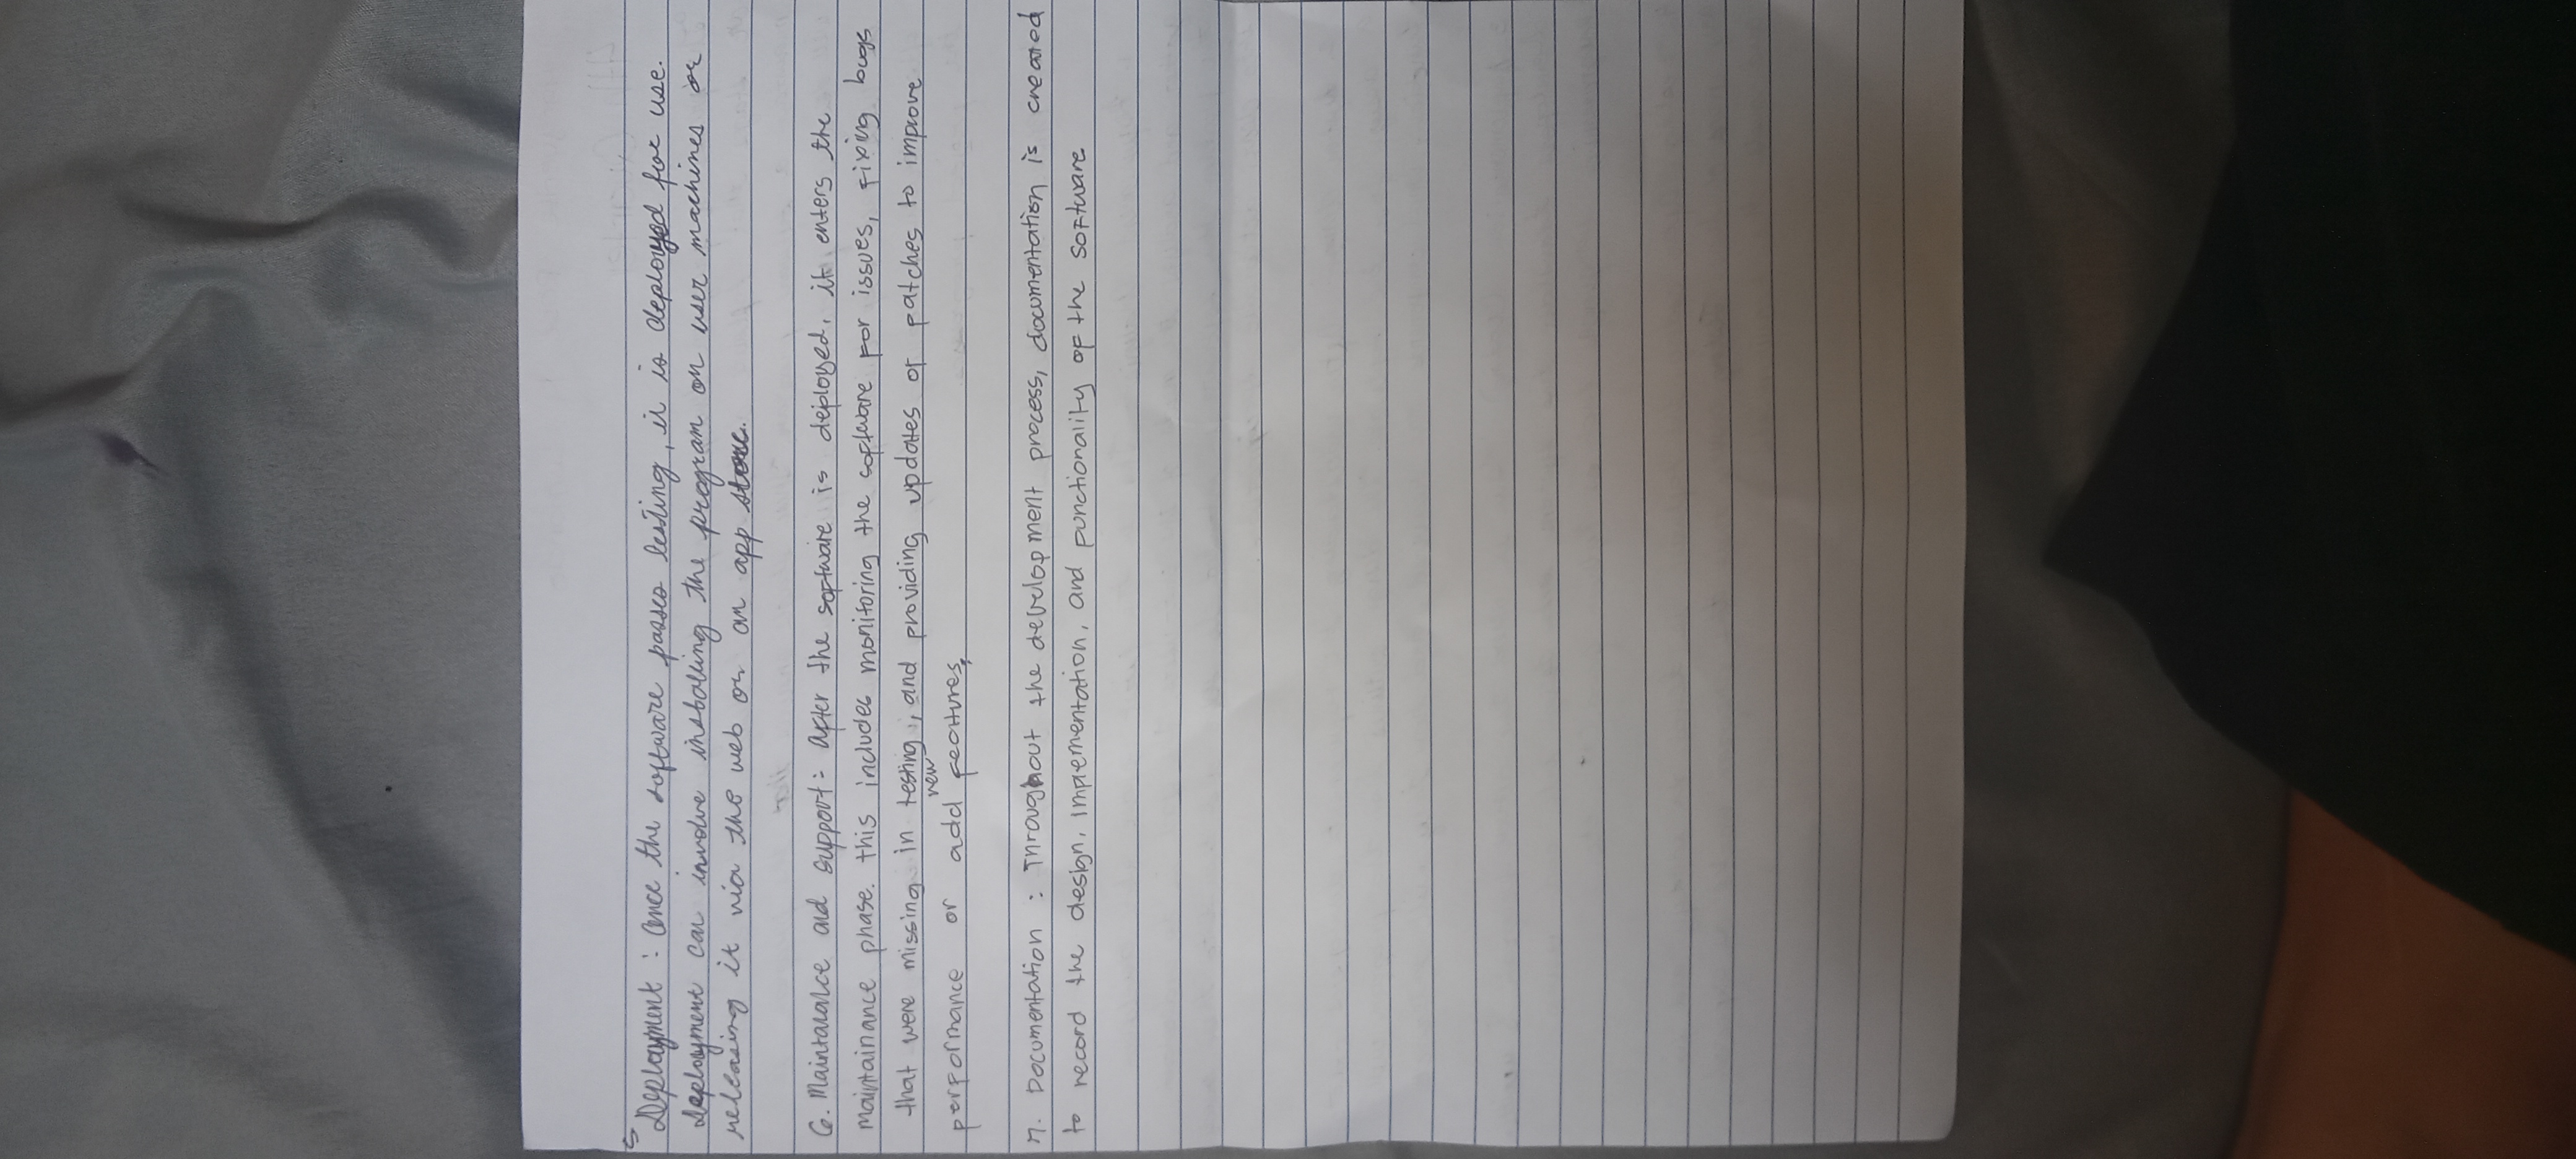 5 Deployment : Once the software passes testing, it is deployed for use.
Deployment can involve installing the program on user machines or
releasing it via the web or an app store.
6. Maintanance and support : After the software is deployed, it enters the
maintainance phase. this includes monitoring the software for issues, fixing bugs
that were missing in testing, and providing updates of patches to improve
performance or add new features,
7. Documentation : Throughout the development process, documentation is created
to record the design, implementation, and functionality of the software